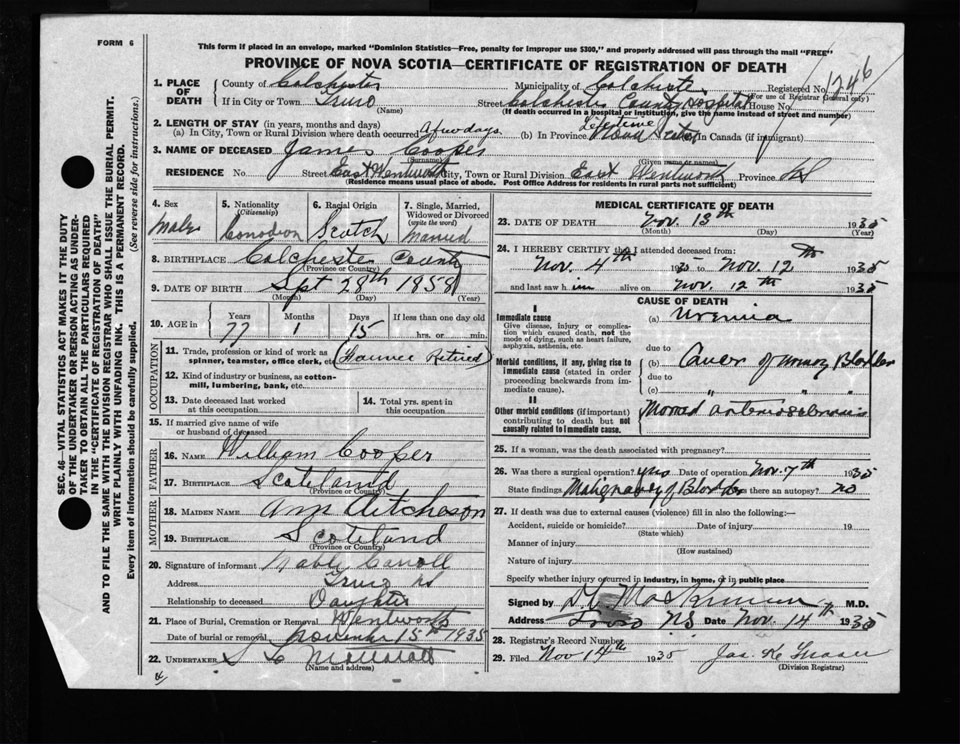 FORM 6
This form if placed in an envelope, marked "Dominion Statistics—Free, penalty for improper use $300," and properly addressed will pass through the mail "FREE"
PROVINCE OF NOVA SCOTIA—CERTIFICATE OF REGISTRATION OF DEATH
1. PLACE OF DEATH County of Colchester Municipality of Colchester Registered No. 1246
(For use of Registrar General only)
If in City or Town Truro (Name) Street Colchester County Hospital House No.
(If death occurred in a hospital or institution, give the name instead of street and number)
2. LENGTH OF STAY (in years, months and days)
(a) In City, Town or Rural Division where death occurred a few days (b) In Province lifetime Nova Scotia In Canada (if immigrant)
3. NAME OF DECEASED James Cooper
(Surname) (Given name or names)
RESIDENCE No. Street East Wentworth City, Town or Rural Division East Wentworth Province NS
(Residence means usual place of abode. Post Office Address for residents in rural parts not sufficient)
4. Sex Male
5. Nationality (Citizenship) Canadian
6. Racial Origin Scotch
7. Single, Married, Widowed or Divorced (write the word) Married
8. BIRTHPLACE Colchester County
(Province or Country)
9. DATE OF BIRTH Sept 28th 1858
(Month) (Day) (Year)
10. AGE in Years Months Days If less than one day old
77 1 15 hrs. or min.
OCCUPATION
11. Trade, profession or kind of work as spinner, teamster, office clerk, etc. (Farmer Retired)
12. Kind of industry or business, as cotton-mill, lumbering, bank, etc.
13. Date deceased last worked at this occupation
14. Total yrs. spent in this occupation
15. If married give name of wife or husband of deceased
FATHER
16. NAME William Cooper
17. BIRTHPLACE Scotland
(Province or Country)
MOTHER
18. MAIDEN NAME Ann Aitcheson
19. BIRTHPLACE Scotland
(Province or Country)
20. Signature of informant Mable Carroll
Address Truro NS
Relationship to deceased Daughter
21. Place of Burial, Cremation or Removal Wentworth
Date of burial or removal November 15th 1935
22. UNDERTAKER
(Name and address)
MEDICAL CERTIFICATE OF DEATH
23. DATE OF DEATH Nov. 13th 1935
(Month) (Day) (Year)
24. I HEREBY CERTIFY that I attended deceased from:
Nov. 4th 1935 to Nov. 12th 1935
and last saw him alive on Nov. 12th 1935
CAUSE OF DEATH
I
Immediate cause
Give disease, injury or complication which caused death, not the mode of dying, such as heart failure, asphyxia, asthenia, etc.
(a) Uremia
due to
Morbid conditions, if any, giving rise to immediate cause (stated in order proceeding backwards from immediate cause).
(b) Cancer of urinary Bladder
due to
(c) " "
II
Other morbid conditions (if important) contributing to death but not causally related to immediate cause.
Marked arteriosclerosis
25. If a woman, was the death associated with pregnancy?
26. Was there a surgical operation? yes Date of operation Nov. 7th 1935
State findings Malignancy of Bladder Was there an autopsy? no
27. If death was due to external causes (violence) fill in also the following:—
Accident, suicide or homicide? Date of injury 19
(State which)
Manner of injury
(How sustained)
Nature of injury
Specify whether injury occurred in industry, in home, or in public place
Signed by M.D.
Address Truro NS Date Nov. 14th 1935
28. Registrar's Record Number
29. Filed Nov 14th 1935 Jas. K Fraser
(Division Registrar)
SEC. 46—VITAL STATISTICS ACT MAKES IT THE DUTY
OF THE UNDERTAKER OR PERSON ACTING AS UNDER-
TAKER TO OBTAIN ALL THE PARTICULARS REQUIRED
IN THE "CERTIFICATE OF REGISTRATION OF DEATH"
AND TO FILE THE SAME WITH THE DIVISION REGISTRAR WHO SHALL ISSUE THE BURIAL PERMIT.
WRITE PLAINLY WITH UNFADING INK. THIS IS A PERMANENT RECORD.
Every item of information should be carefully supplied. (See reverse side for instructions).